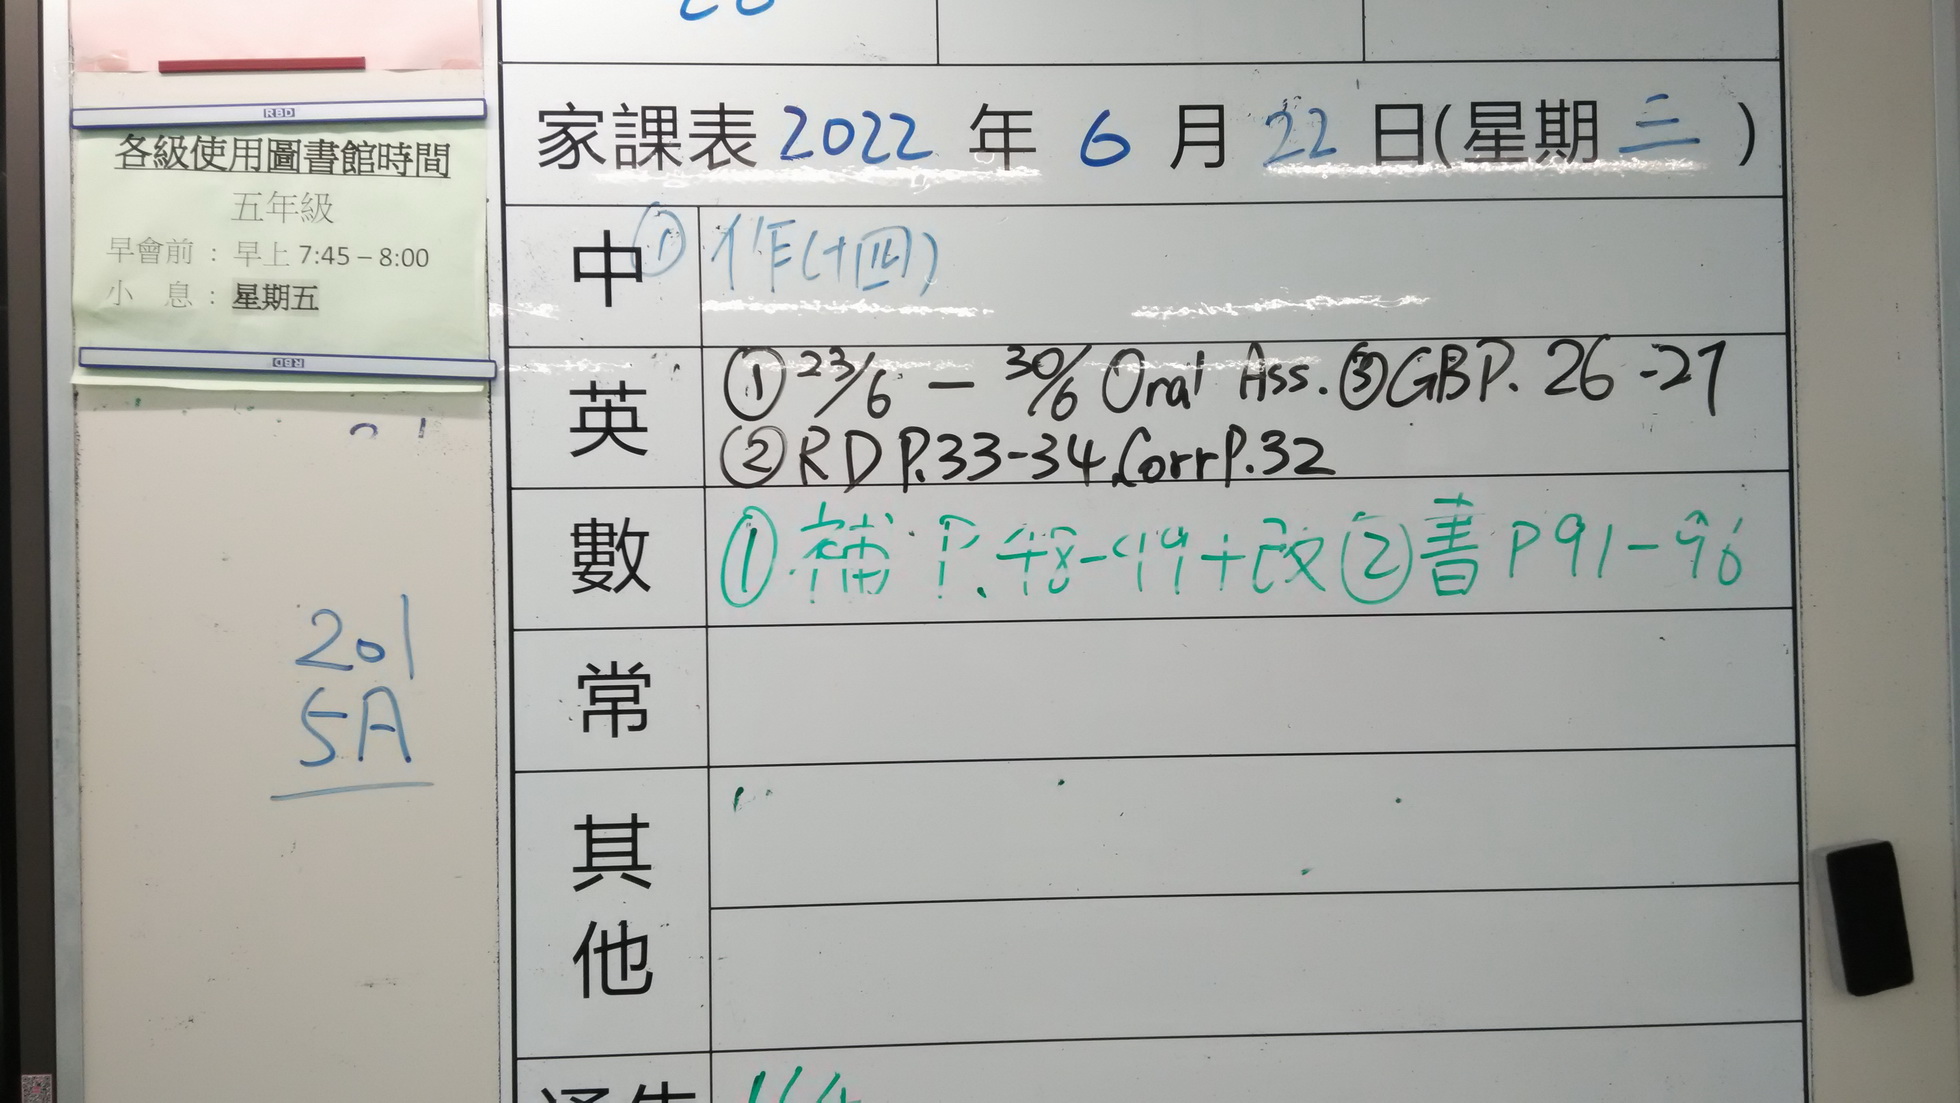 RBD
各級使用圖書館時間
五年級
早會前 : 早上 7:45 – 8:00
小 息 : 星期五
RBD
201
5A
家課表 2022 年 6 月 22 日(星期 三 )
中 ① 作(十四)
英 ① 23/6 — 30/6 Oral Ass. ③ GB P. 26-27
② RD P.33-34, Corr P.32
數 ① 補 P. 48-49+改 ② 書 P 91-96
常
其他
通告 164